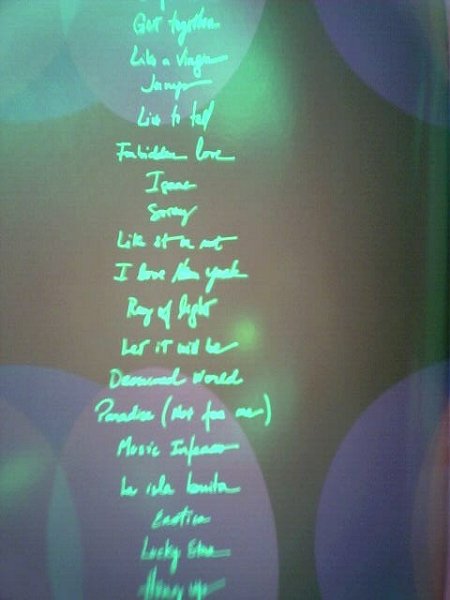 Get together
Like a virgin
Jump
Live to tell
Forbidden love
Isaac
Sorry
Like it or not
I love New York
Ray of light
Let it will be
Drowned World
Paradise (Not for me)
Music Inferno
La isla bonita
Erotica
Lucky Star
Hung up